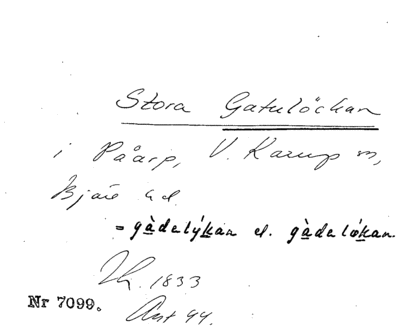 Stora Gatulöckan
i Påarp, V. Karup sn,
Bjäre hd
= gàdelýkan el. gàdeløkan.
1833
Nr 7099.
Ant 44.